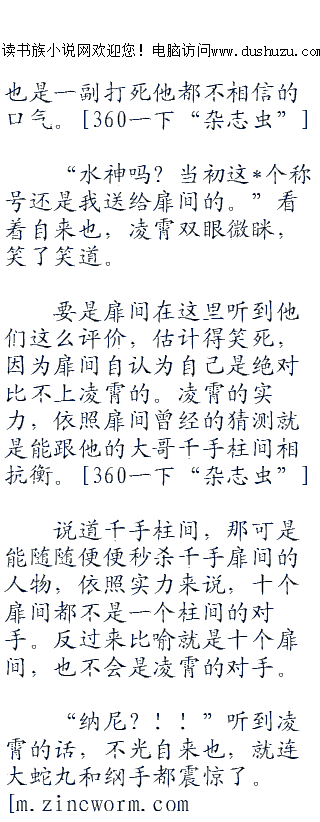 读书族小说网欢迎您！电脑访问www.dushuzu.com
也是一副打死他都不相信的
口气。[360一下“杂志虫”]
“水神吗？当初这*个称
号还是我送给扉间的。”看
着自来也，凌霄双眼微眯，
笑了笑道。
要是扉间在这里听到他
们这么评价，估计得笑死，
因为扉间自认为自己是绝对
比不上凌霄的。凌霄的实
力，依照扉间曾经的猜测就
是能跟他的大哥千手柱间相
抗衡。[360一下“杂志虫”]
说道千手柱间，那可是
能随随便便秒杀千手扉间的
人物，依照实力来说，十个
扉间都不是一个柱间的对
手。反过来比喻就是十个扉
间，也不会是凌霄的对手。
“纳尼？！！”听到凌
霄的话，不光自来也，就连
大蛇丸和纲手都震惊了。
[m.zincworm.com